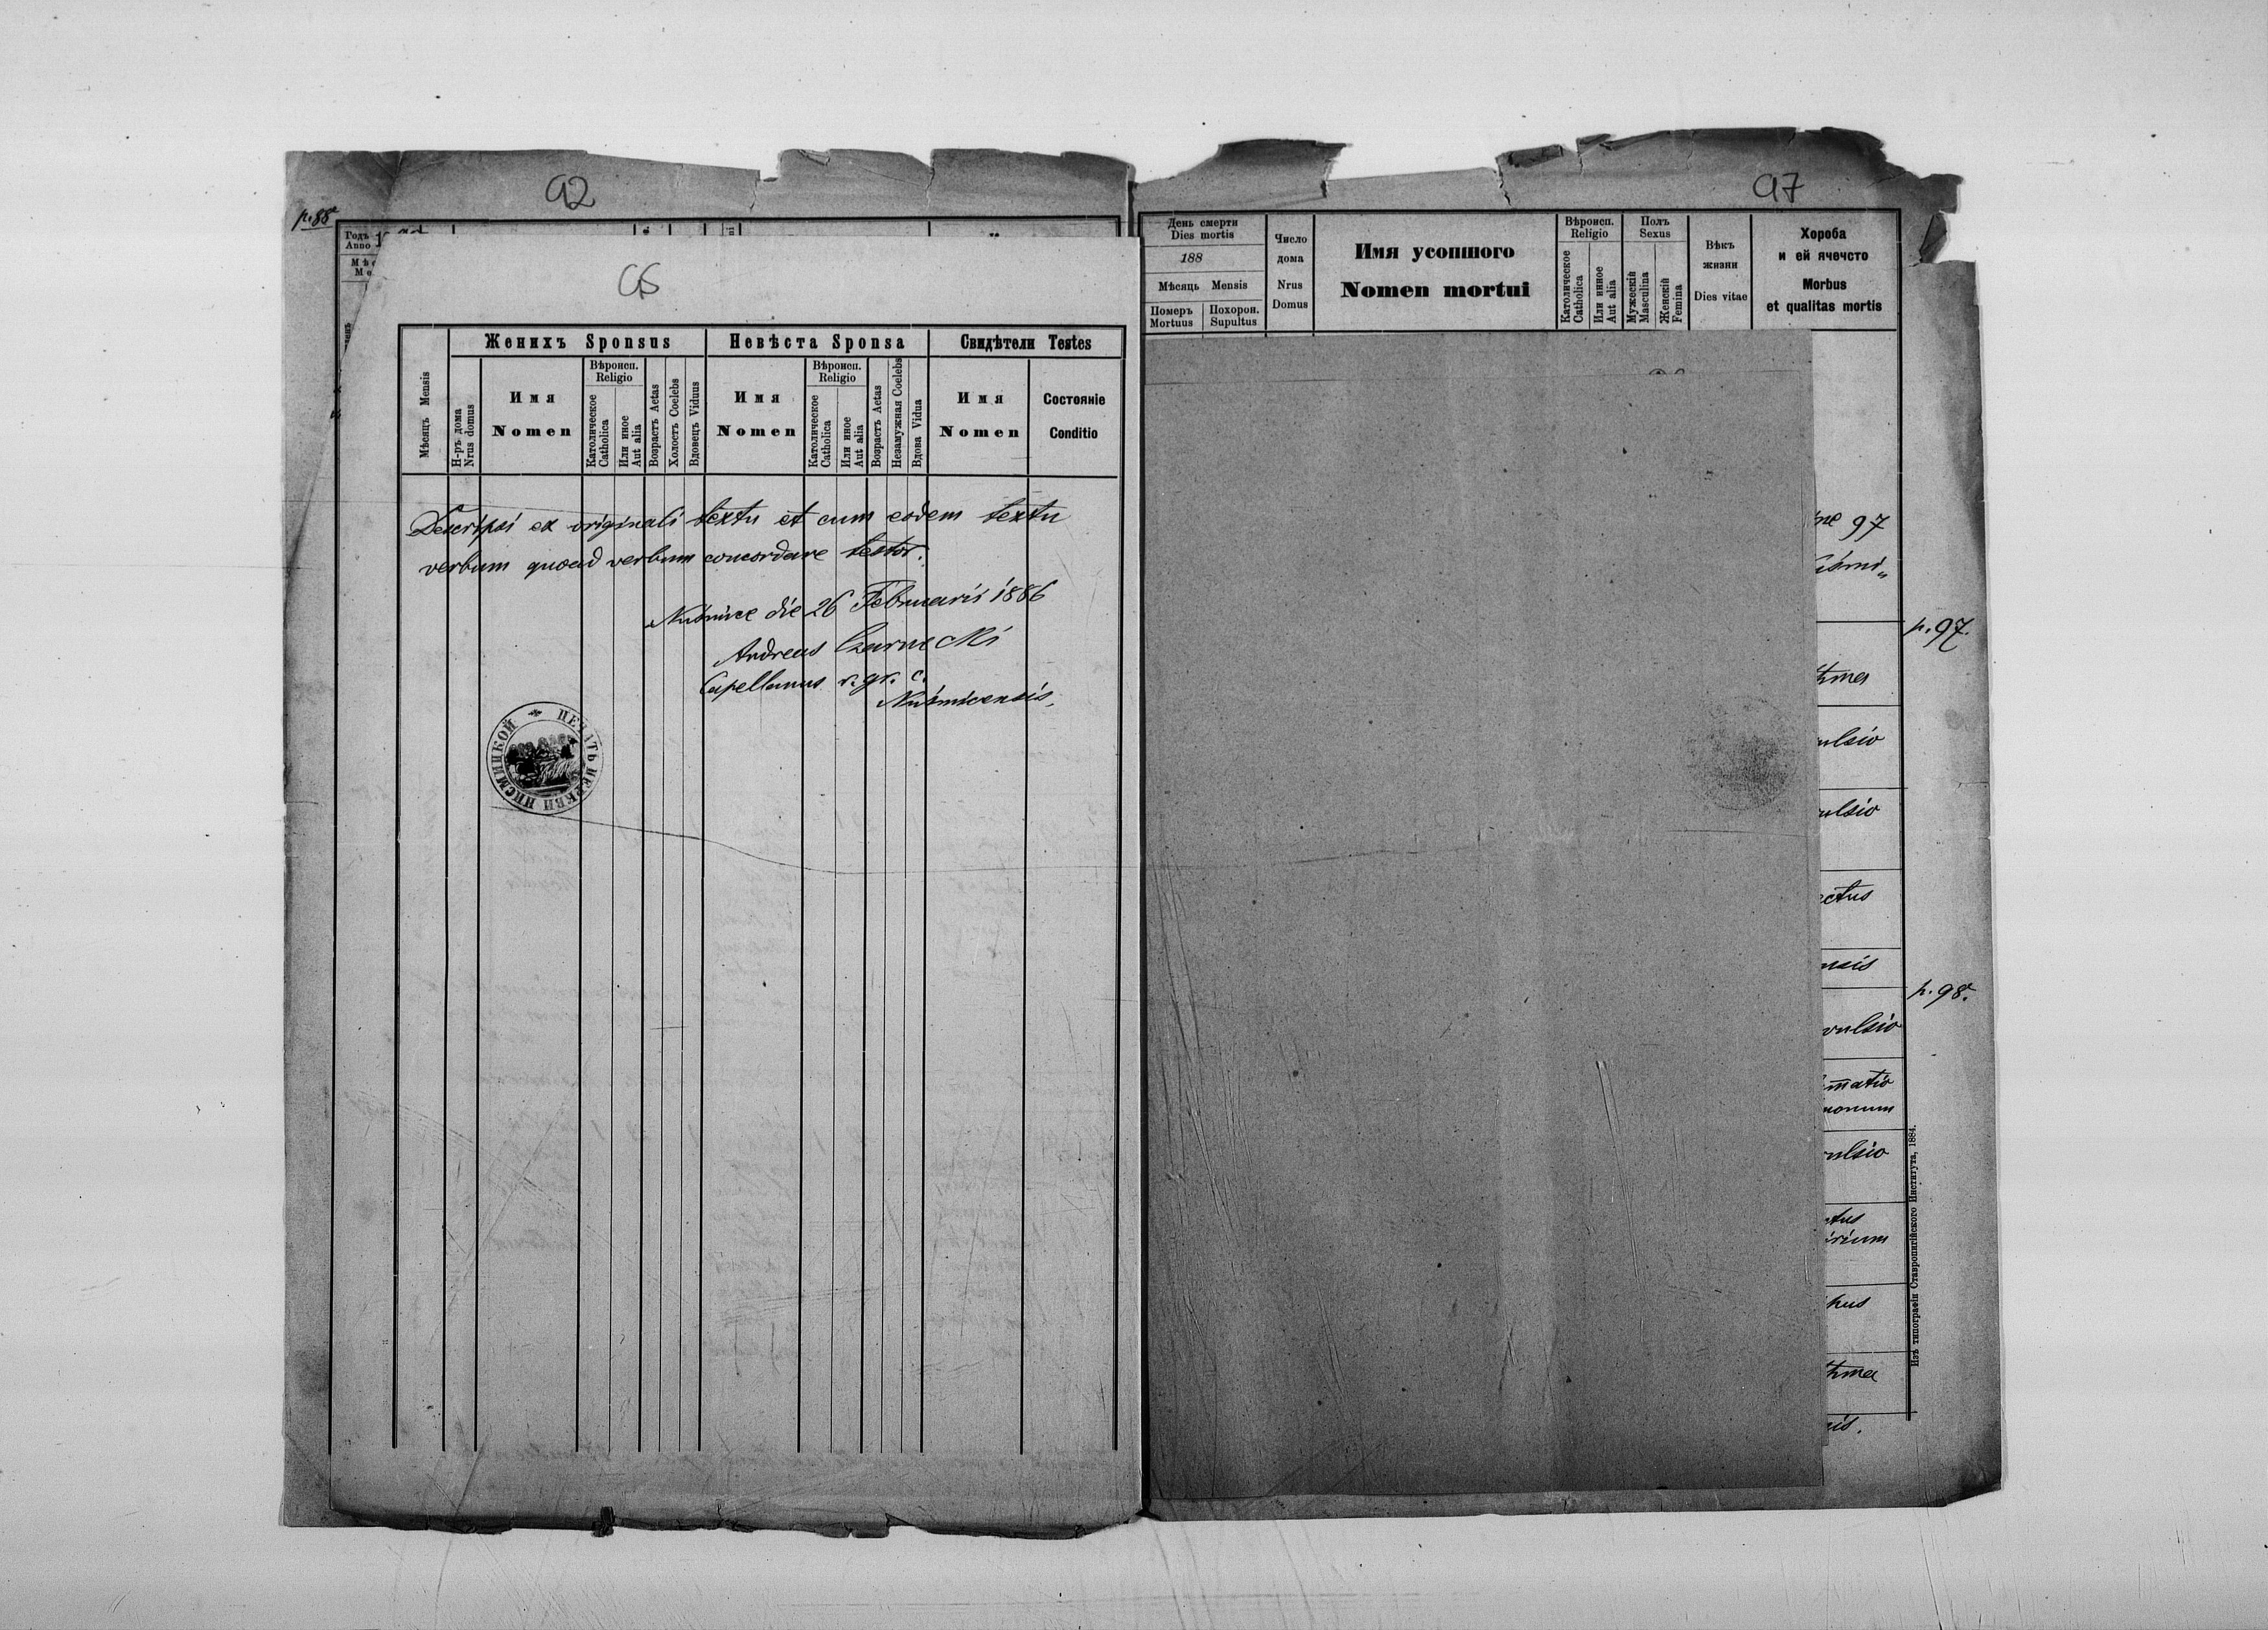 92
p. 88
Годъ
Anno
95
Женихъ Sponsus
Невѣста Sponsa
Свидѣтели Testes
Мѣсяцъ Mensis
Н-ръ дома
Nrus domus
Имя
Nomen
Вѣроисп.
Religio
Католическое
Catholica
Или иное
Aut alia
Возрастъ Aetas
Холостъ Coelebs
Вдовецъ Viduus
Имя
Nomen
Вѣроисп.
Religio
Католическое
Catholica
Или иное
Aut alia
Возрастъ Aetas
Незамужная Coelebs
Вдова Vidua
Имя
Nomen
Состояніе
Conditio
Descripsi ex originali textu et cum eodem textu
verbum quoad verbum concordare testor.
Nuśmice die 26 Februarii 1886
Andreas Czarnecki
Capellanus r. gr. c.
Nuśmicensis.
97
День смерти
Dies mortis
188
Мѣсяць Mensis
Померъ
Mortuus
Похорон.
Supultus
Число
дома
Nrus
Domus
Имя усопшого
Nomen mortui
Вѣроисп.
Religio
Католическое
Catholica
Или инное
Aut alia
Полъ
Sexus
Мужескій
Masculina
Женскій
Femina
Вѣкъ
жизни
Dies vitae
Хороба
и ей ячечсто
Morbus
et qualitas mortis
97
p. 97.
hmes
ulsio
ulsio
ectus
nsis
p. 98.
vulsio
matio
monum
ulsio
atus
irium
hus
hma
nis.
Изъ типографіи Ставропигійского Института, 1884.